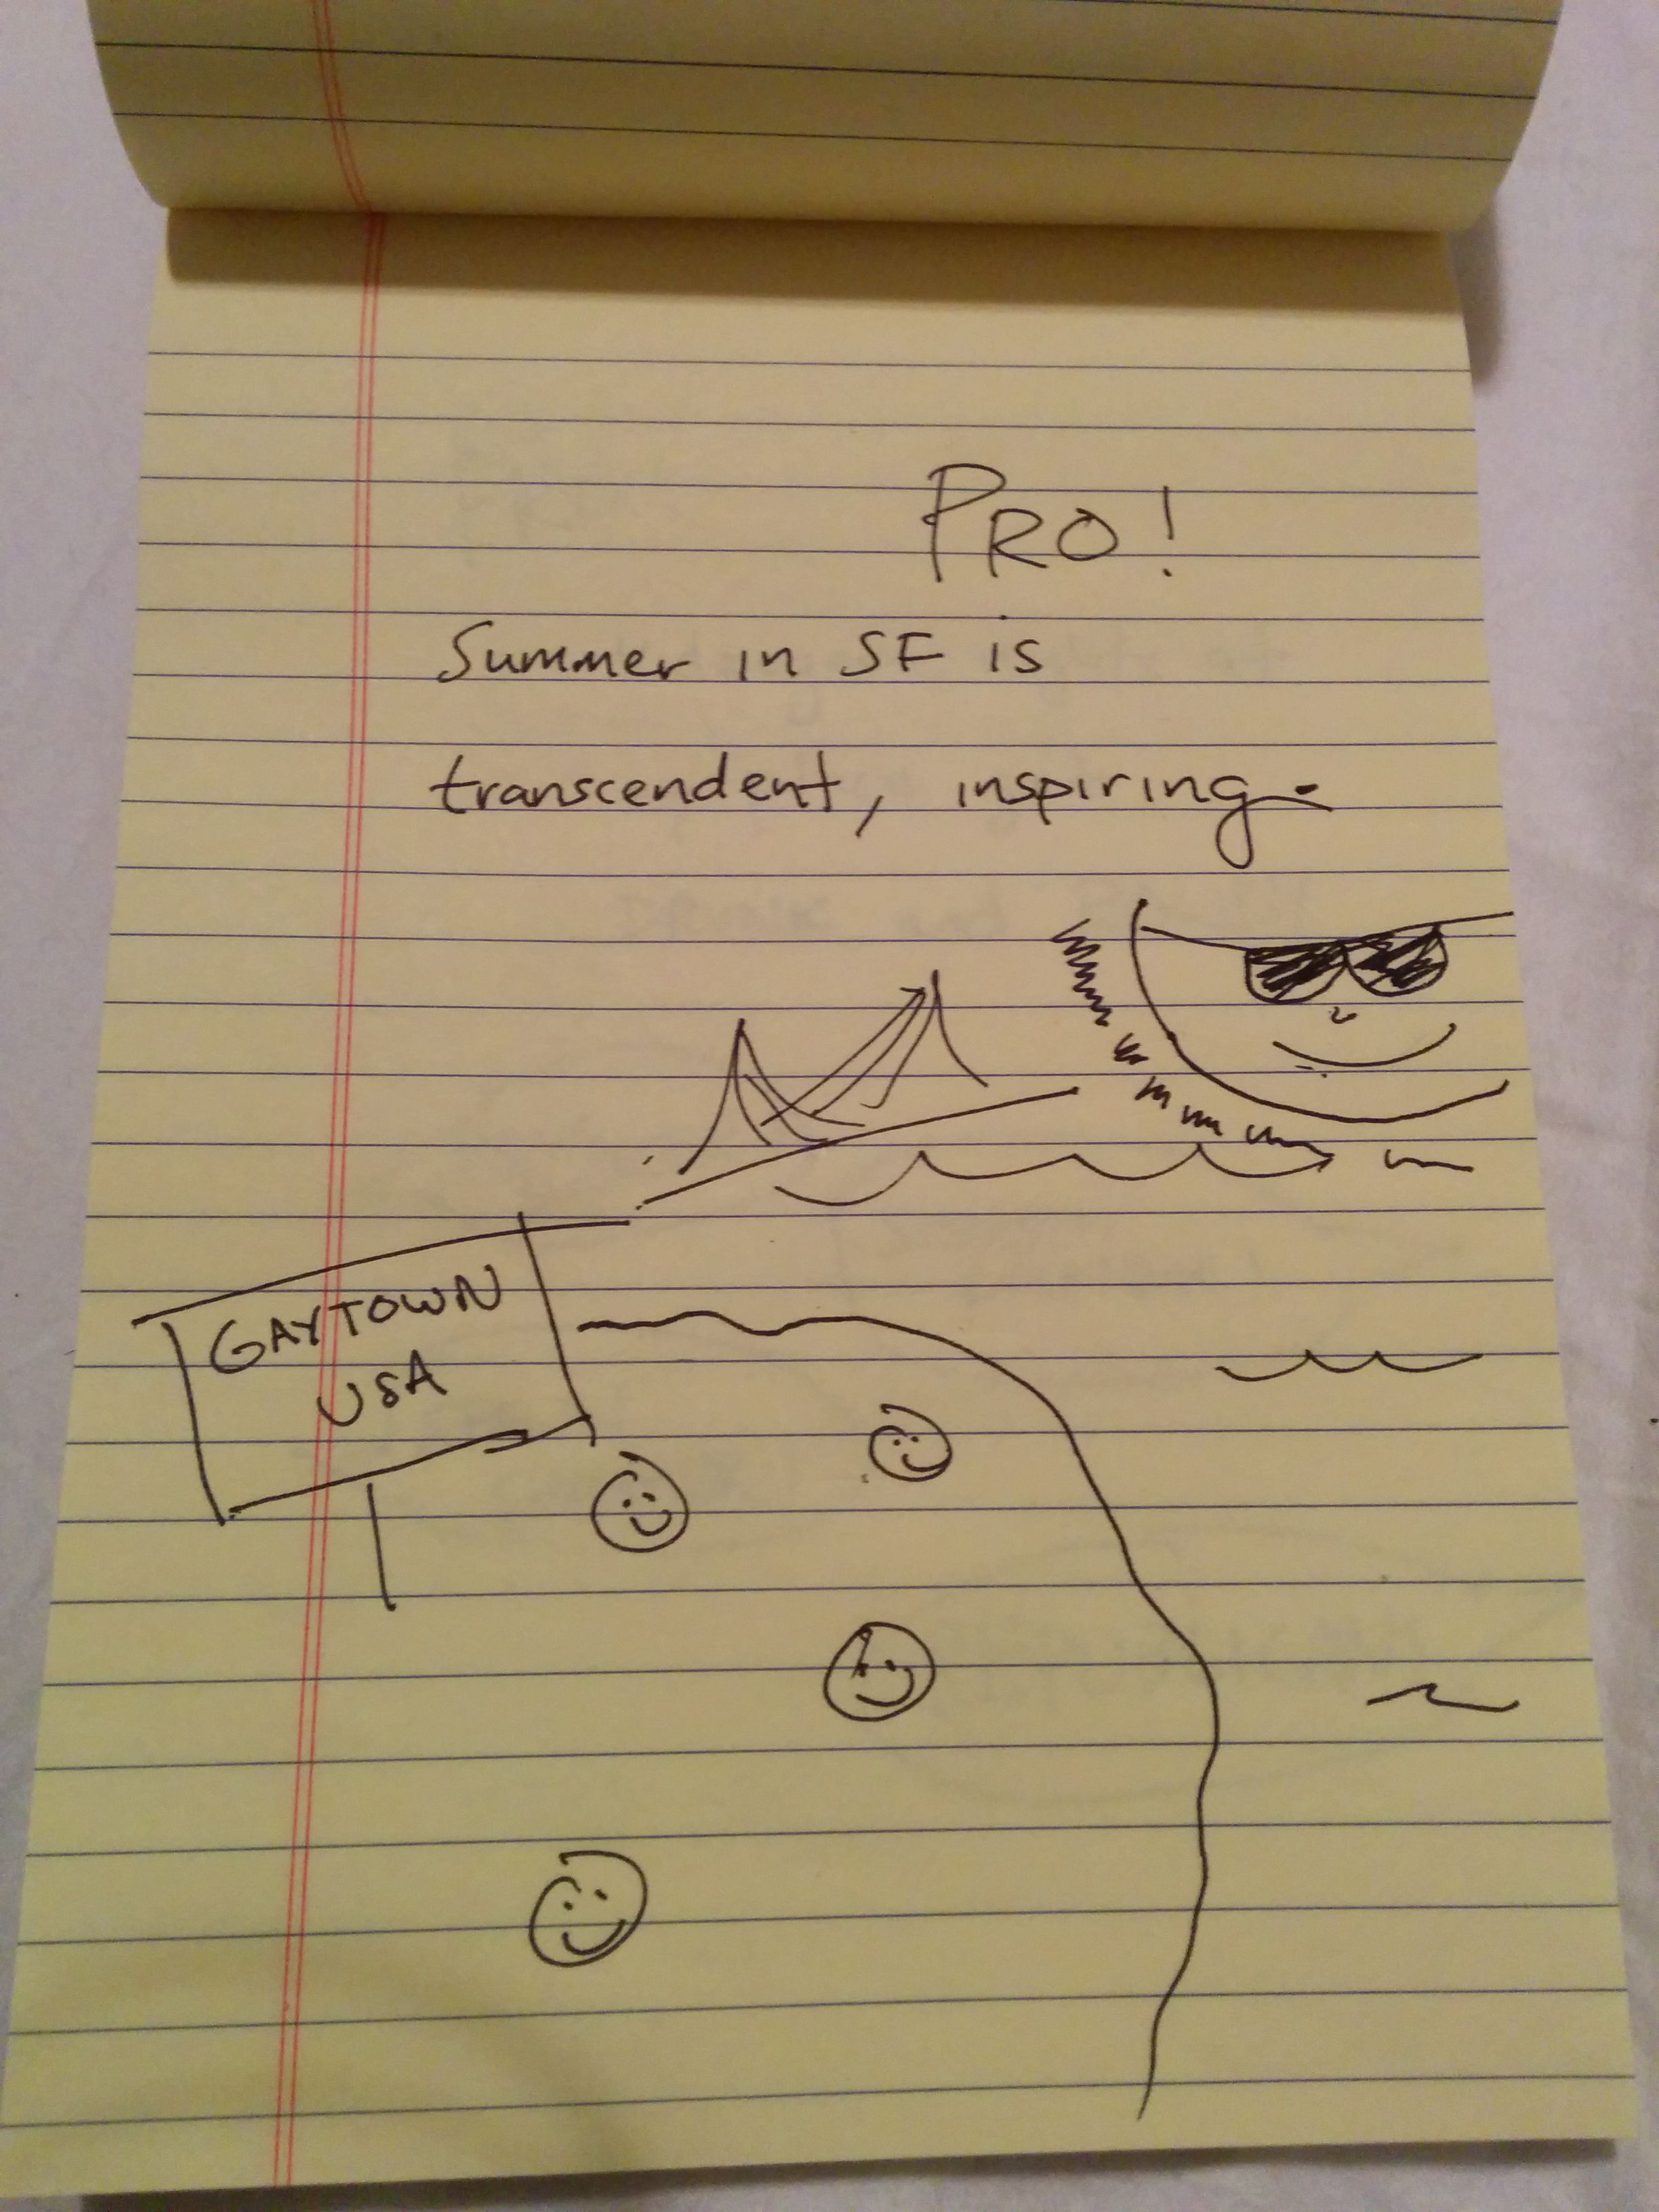 PRO!
Summer in SF is
transcendent, inspiring.
GAYTOWN
USA